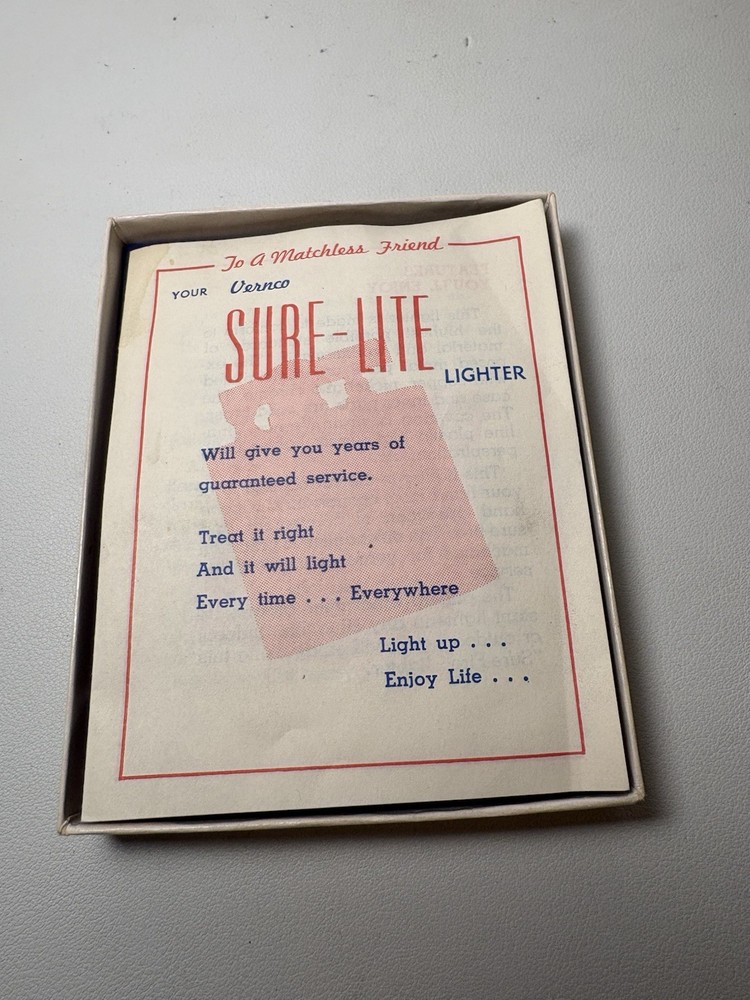 To A Matchless Friend
YOUR Vernco
SURE-LITE
LIGHTER
Will give you years of
guaranteed service.
Treat it right
And it will light
Every time . . . Everywhere
Light up . . .
Enjoy Life . . .